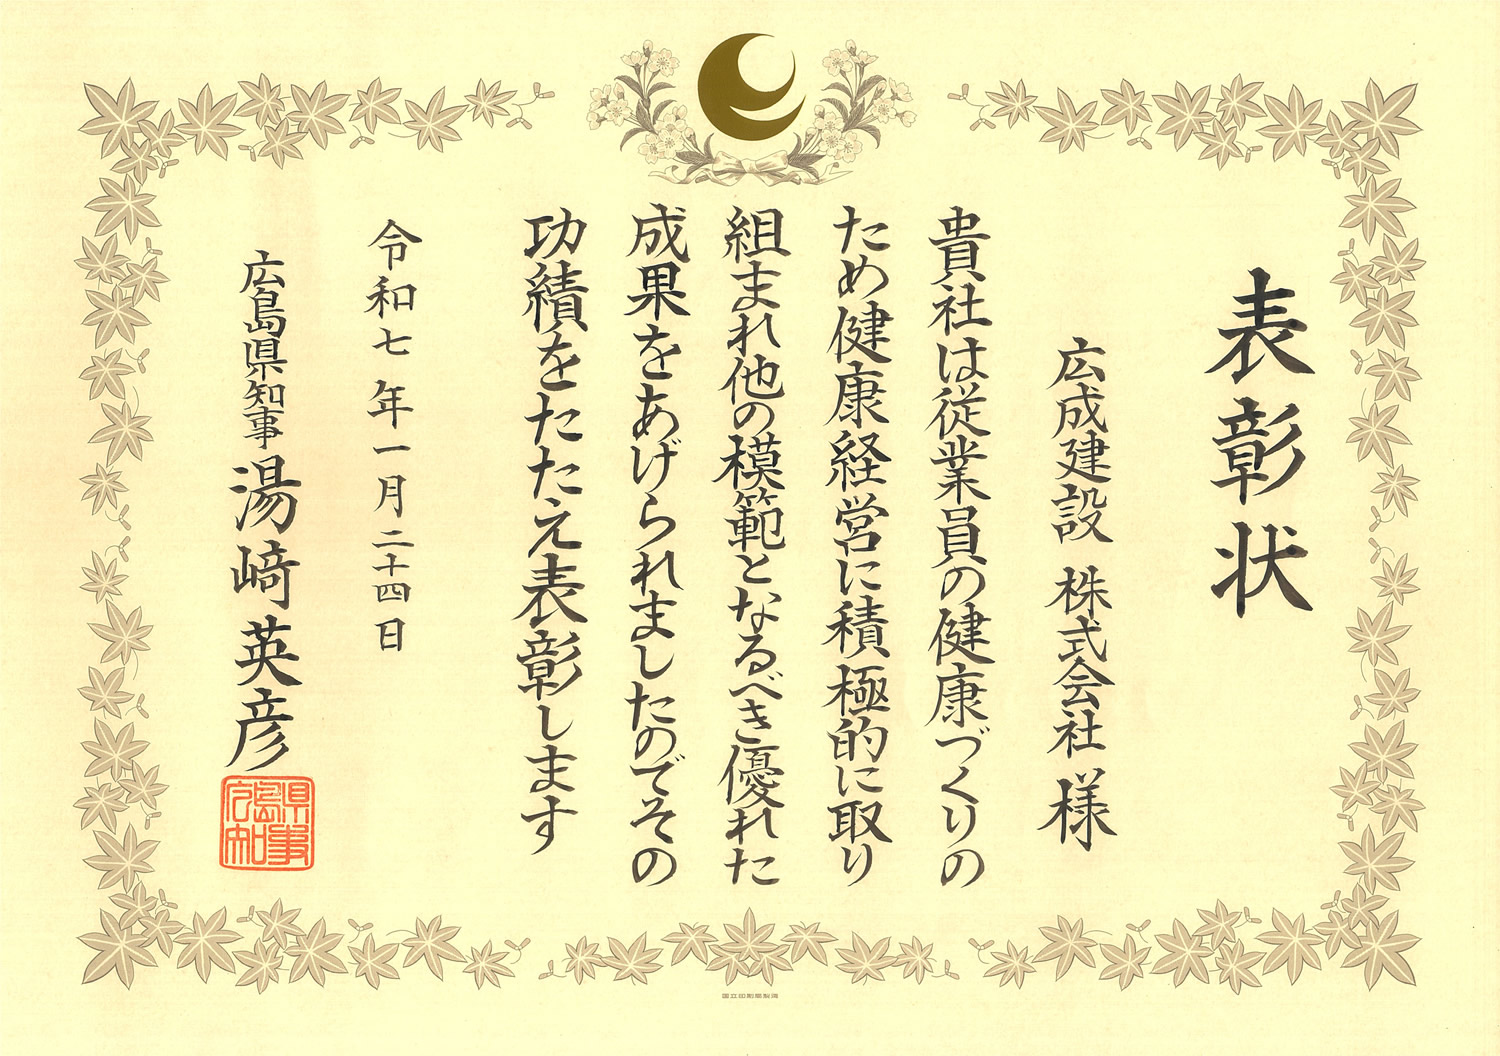 表彰状
広成建設 株式会社 様
貴社は従業員の健康づくりの
ため健康経営に積極的に取り
組まれ他の模範となるべき優れた
成果をあげられましたのでその
功績をたたえ表彰します
令和七年一月二十四日
広島県知事 湯﨑英彦
広島県知事
国立印刷局製造